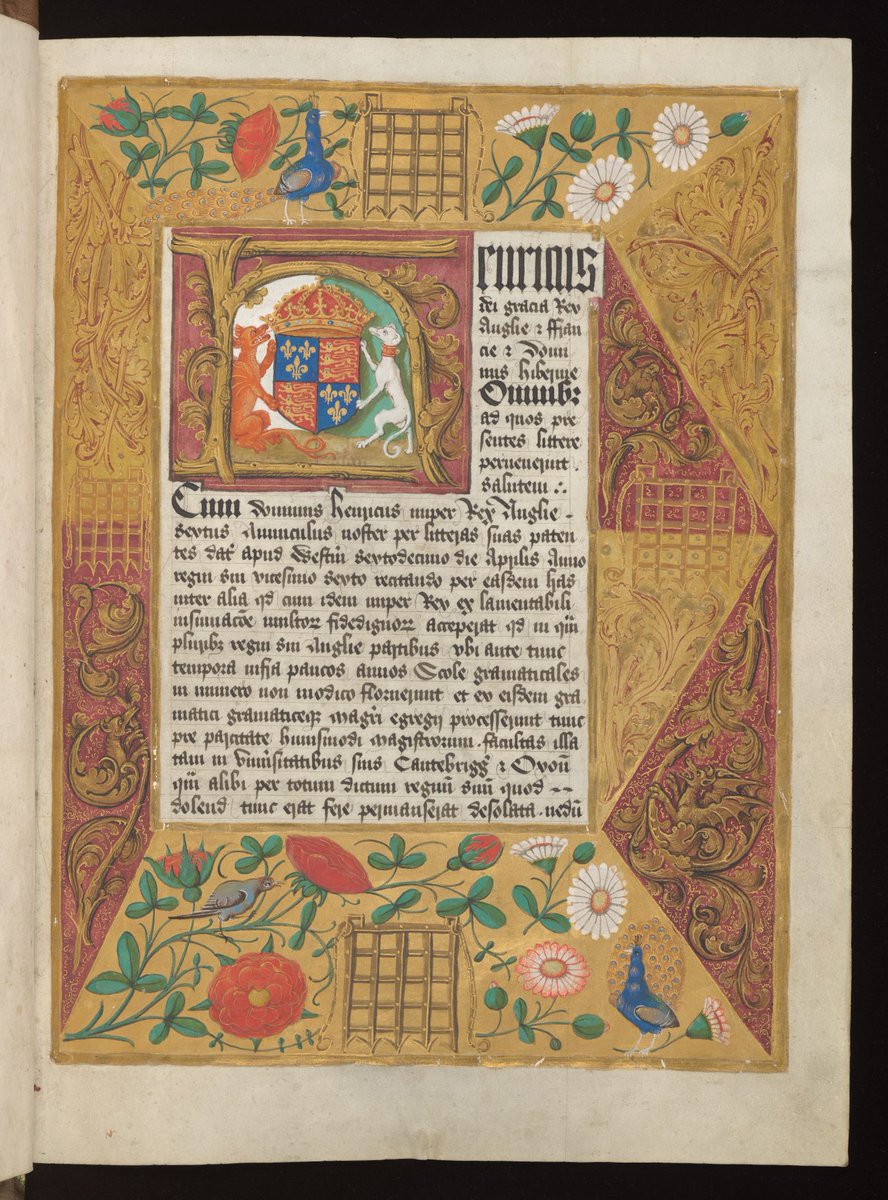 Henricus
dei gracia Rex
Anglie & ffran
cie & Domi
nus hibernie
Omnib3
ad quos pre
sentes littere
peruenerint
salutem ∴
Cum Dominus henricus nuper Rex Anglie -
sextus Auunculus noster per litteras suas paten-
tes dat' apud Westm̄ Sextodecimo die Aprilis Anno
regni sui vicesimo sexto recitando per easdem has
inter alia qd cum idem nuper Rex ex lamentabili
insinuacōe multor fidedignorr acceperat qd in
plurib3 regni sui Anglie partibus vbi ante tunc
tempora infra paucos annos Scole gramaticales
in numero non modico floruerunt et ex eisdem gra
matici gramaticeq3 magr̄i egregij processerunt tunc
pre parcitate huiusmodi magistrorum . facultas illa
tam in Vniu'sitatibus suis Cantebrigg' & Oxoñ
alibi per totum dictum regnū suū quod --
dolend' tunc erat fere permanserat desolata . nedū